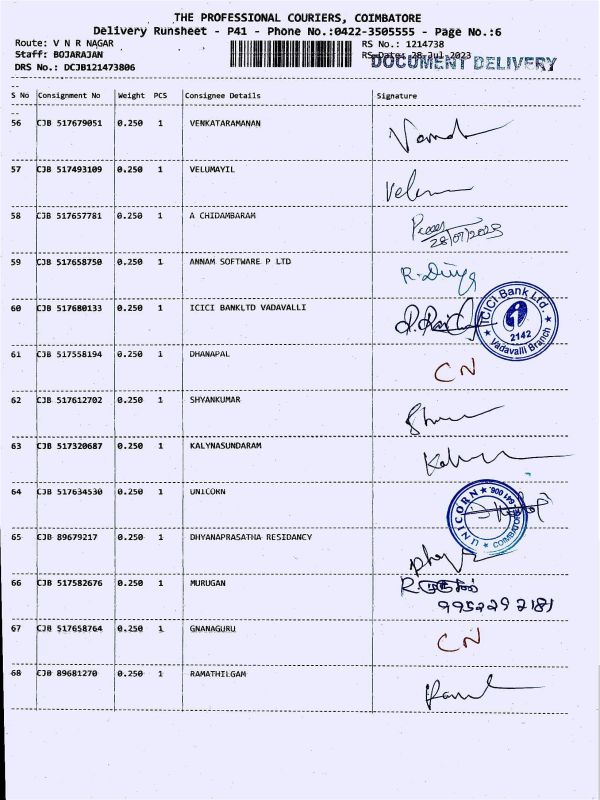 THE PROFESSIONAL COURIERS, COIMBATORE
Delivery Runsheet - P41 - Phone No.:0422-3505555 - Page No.:6
Route: V N R NAGAR RS No.: 1214738
Staff: BOJARAJAN RS Date: 28-Jul-2023
DRS No.: DCJB121473806 DOCUMENT DELIVERY
S No Consignment No Weight PCS Consignee Details Signature
56 CJB 517679051 0.250 1 VENKATARAMANAN
57 CJB 517493109 0.250 1 VELUMAYIL
58 CJB 517657781 0.250 1 A CHIDAMBARAM
28/07/2023
59 CJB 517658750 0.250 1 ANNAM SOFTWARE P LTD R. Divya
60 CJB 517680133 0.250 1 ICICI BANKLTD VADAVALLI
ICICI Bank Ltd.
2142
Vadavalli Branch
61 CJB 517558194 0.250 1 DHANAPAL CN
62 CJB 517612702 0.250 1 SHYANKUMAR
63 CJB 517320687 0.250 1 KALYNASUNDARAM
64 CJB 517634530 0.250 1 UNICORN
UNICORN
COIMBATORE 641 006
65 CJB 89679217 0.250 1 DHYANAPRASATHA RESIDANCY
66 CJB 517582676 0.250 1 MURUGAN
9952292181
67 CJB 517658764 0.250 1 GNANAGURU CN
68 CJB 89681270 0.250 1 RAMATHILGAM